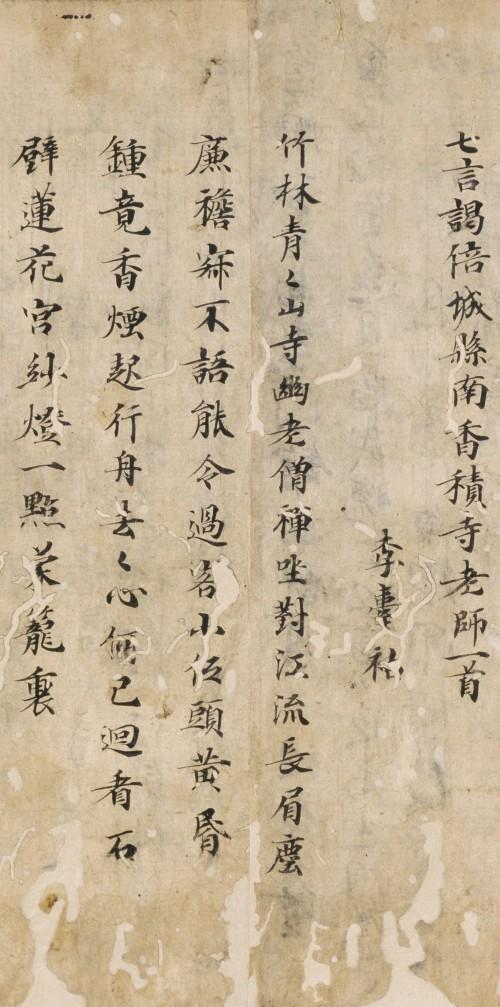 七言謁倍城縣南香積寺老師一首
李
竹林青々山寺幽老僧禪坐對江流長眉塵
廉襜寂不語能令過客小低頭黄昏
鍾竟香煙起行舟去々心何已迴看石
壁蓮花宮紗燈一點籠裏